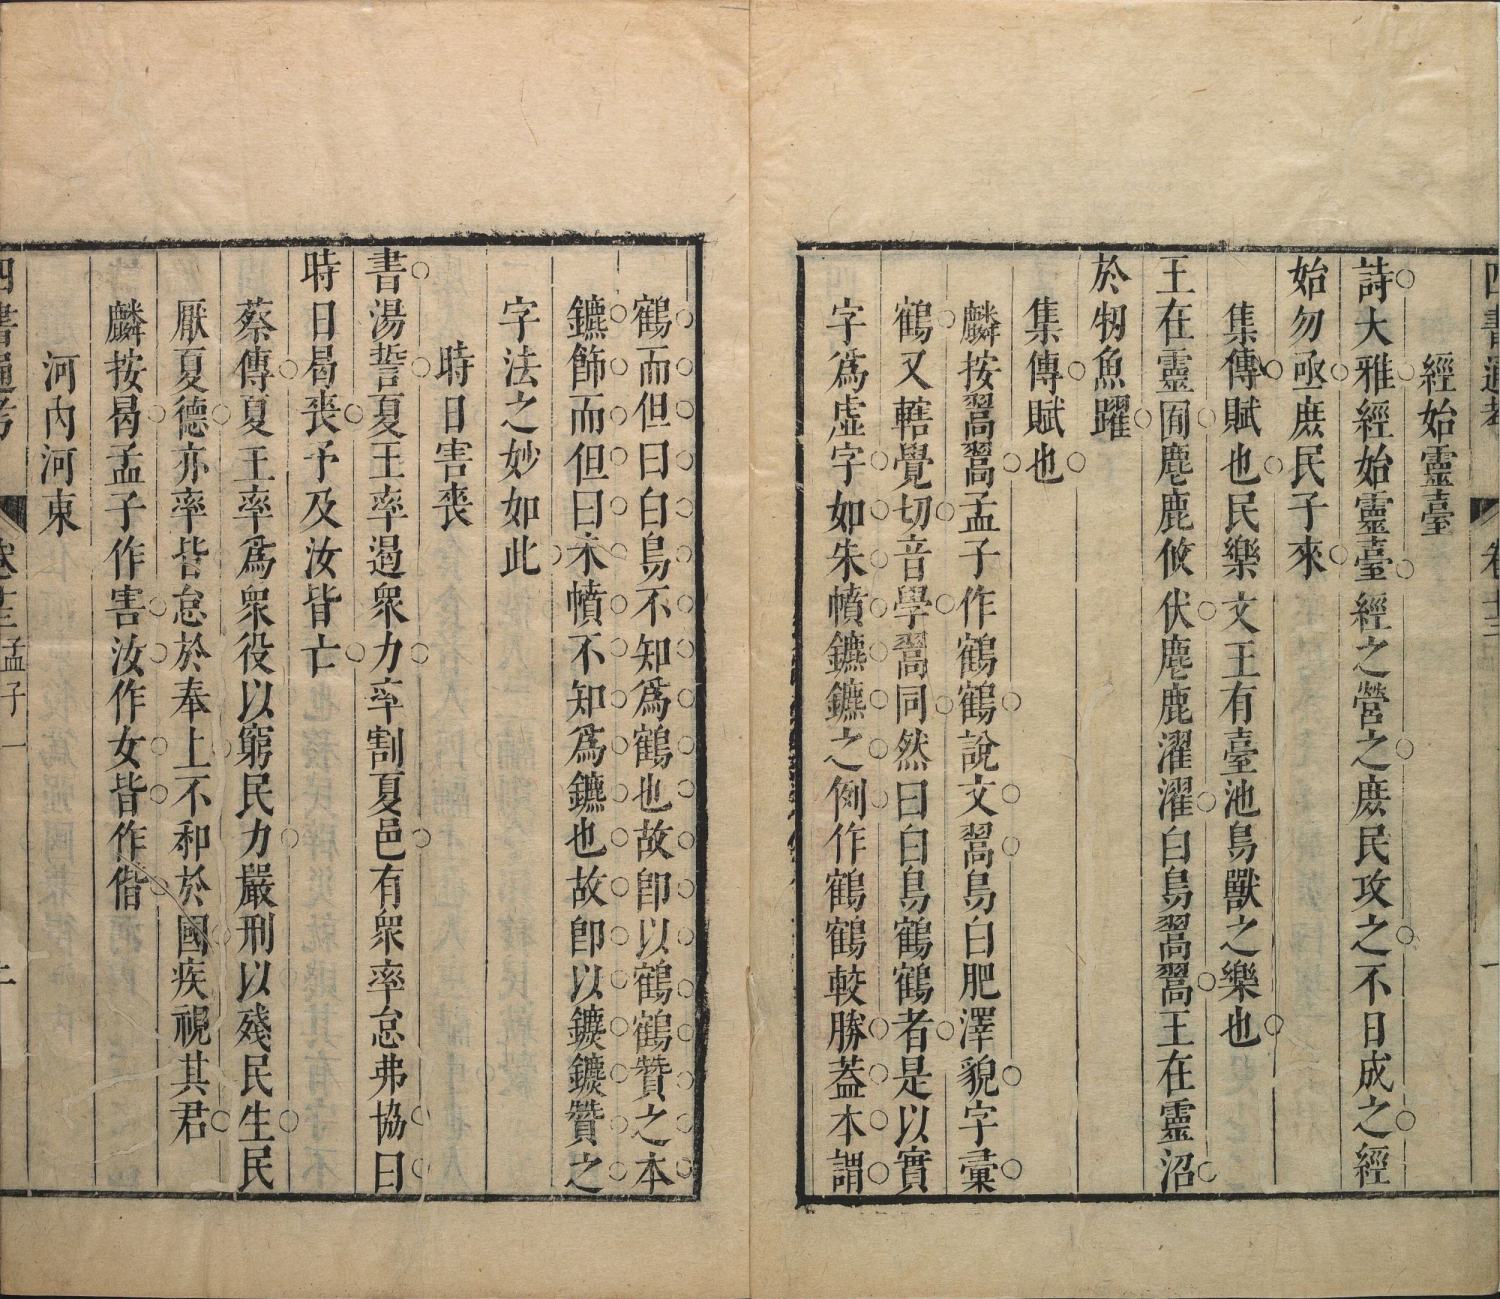 經始靈臺
詩大雅經始靈臺經之營之庶民攻之不日成之經
始勿亟庶民子來
集傳賦也民樂文王有臺池鳥獸之樂也
王在靈囿麀鹿攸伏麀鹿濯濯白鳥翯翯王在靈沼
於牣魚躍
集傳賦也
麟按翯翯孟子作鶴鶴說文翯鳥白肥澤貌字彙
鶴又轄覺切音學翯同然曰白鳥鶴鶴者是以實
字爲虛字如朱幩鑣鑣之例作鶴鶴較勝蓋本謂
鶴而但曰白鳥不知爲鶴也故卽以鶴鶴贊之本
鑣飾而但曰朱幩不知爲鑣也故卽以鑣鑣贊之
字法之妙如此
時日害喪
書湯誓夏王率遏衆力率割夏邑有衆率怠弗協曰
時日曷喪予及汝皆亡
蔡傳夏王率爲衆役以窮民力嚴刑以殘民生民
厭夏德亦率皆怠於奉上不和於國疾視其君
麟按曷孟子作害汝作女皆作偕
河內河東
四書通考 卷十三孟子一